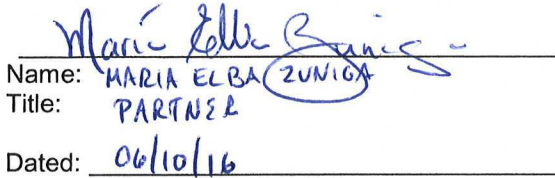 Maria Elba Zuniga
Name: MARIA ELBA ZUNIGA
Title: PARTNER
Dated: 06/10/16